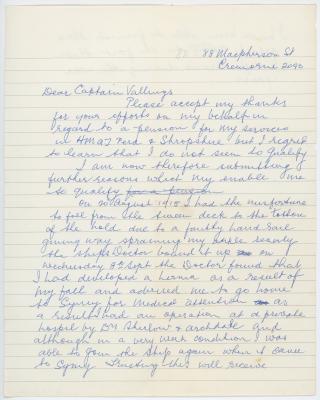 88 Macpherson St
Cremorne 2090
Dear Captain Vallings
Please accept my thanks
for your efforts on my behalf in
regard to a pension for my services
in HMAT Kard & Shropshire but I regret
to learn that I do not seem to qualify
I am now therefore submitting
further reasons which may enable me
to qualify for a pension
On 20 August 1918 I had the misfortune
to fall from the tween deck to the bottom
of the hold due to a faulty hand rail
giving way spraining my ankle severely
the ships Doctor bound it up
Wednesday Sept the Doctor found that
I had developed a hernia as a result of
my fall and advised me to go home
to Sydney for medical attention as
a result I had an operation at a private
hospital by Drs & and
although in a very weak condition I was
able to join the ship again when it came
to Sydney Trusting this will receive